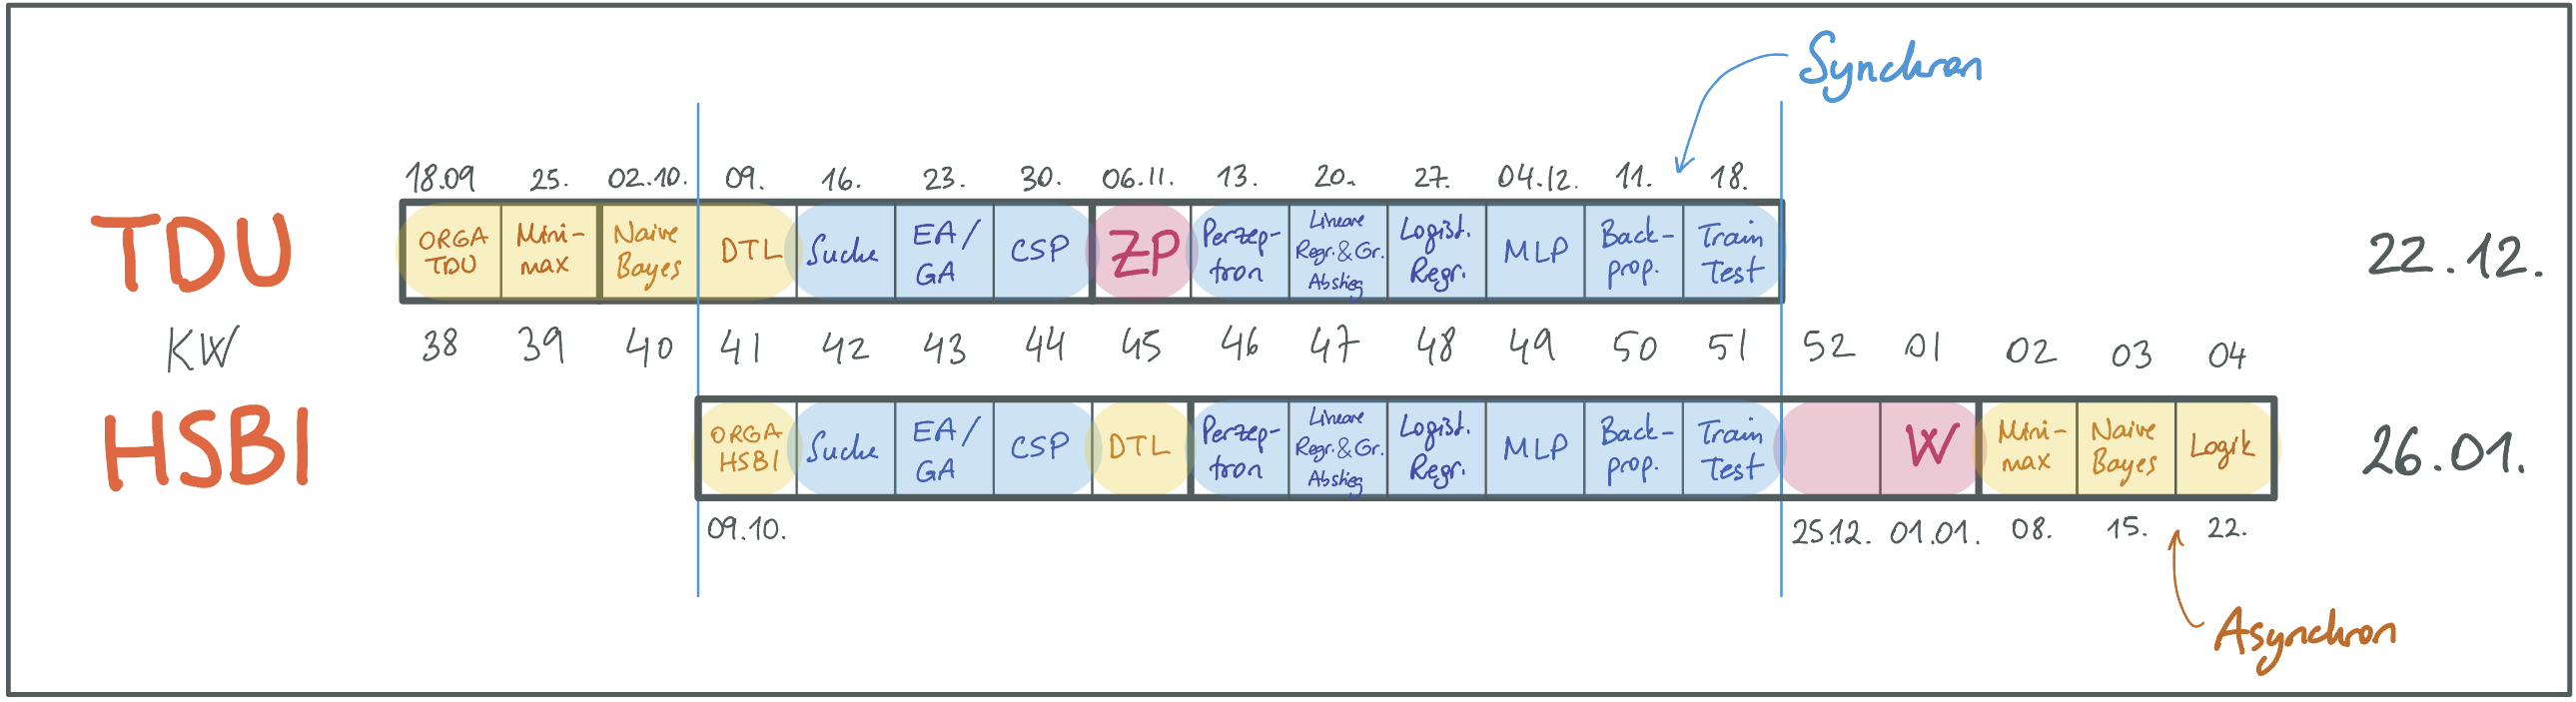 Synchron
18.09 25. 02.10. 09. 16. 23. 30. 06.11. 13. 20. 27. 04.12. 11. 18.
TDU
ORGA
TDU
Mini-
max
Naive
Bayes
DTL
Suche
EA/
GA
CSP
ZP
Perzep-
tron
Lineare
Regr.&Gr.
Abstieg
Logist.
Regr.
MLP
Back-
prop.
Train
Test
22.12.
KW 38 39 40 41 42 43 44 45 46 47 48 49 50 51 52 01 02 03 04
HSBI
ORGA
HSBI
Suche
EA/
GA
CSP
DTL
Perzep-
tron
Lineare
Regr.&Gr.
Abstieg
Logist.
Regr.
MLP
Back-
prop.
Train
Test
W
Mini-
max
Naive
Bayes
Logik
26.01.
09.10. 25.12. 01.01. 08. 15. 22.
Asynchron